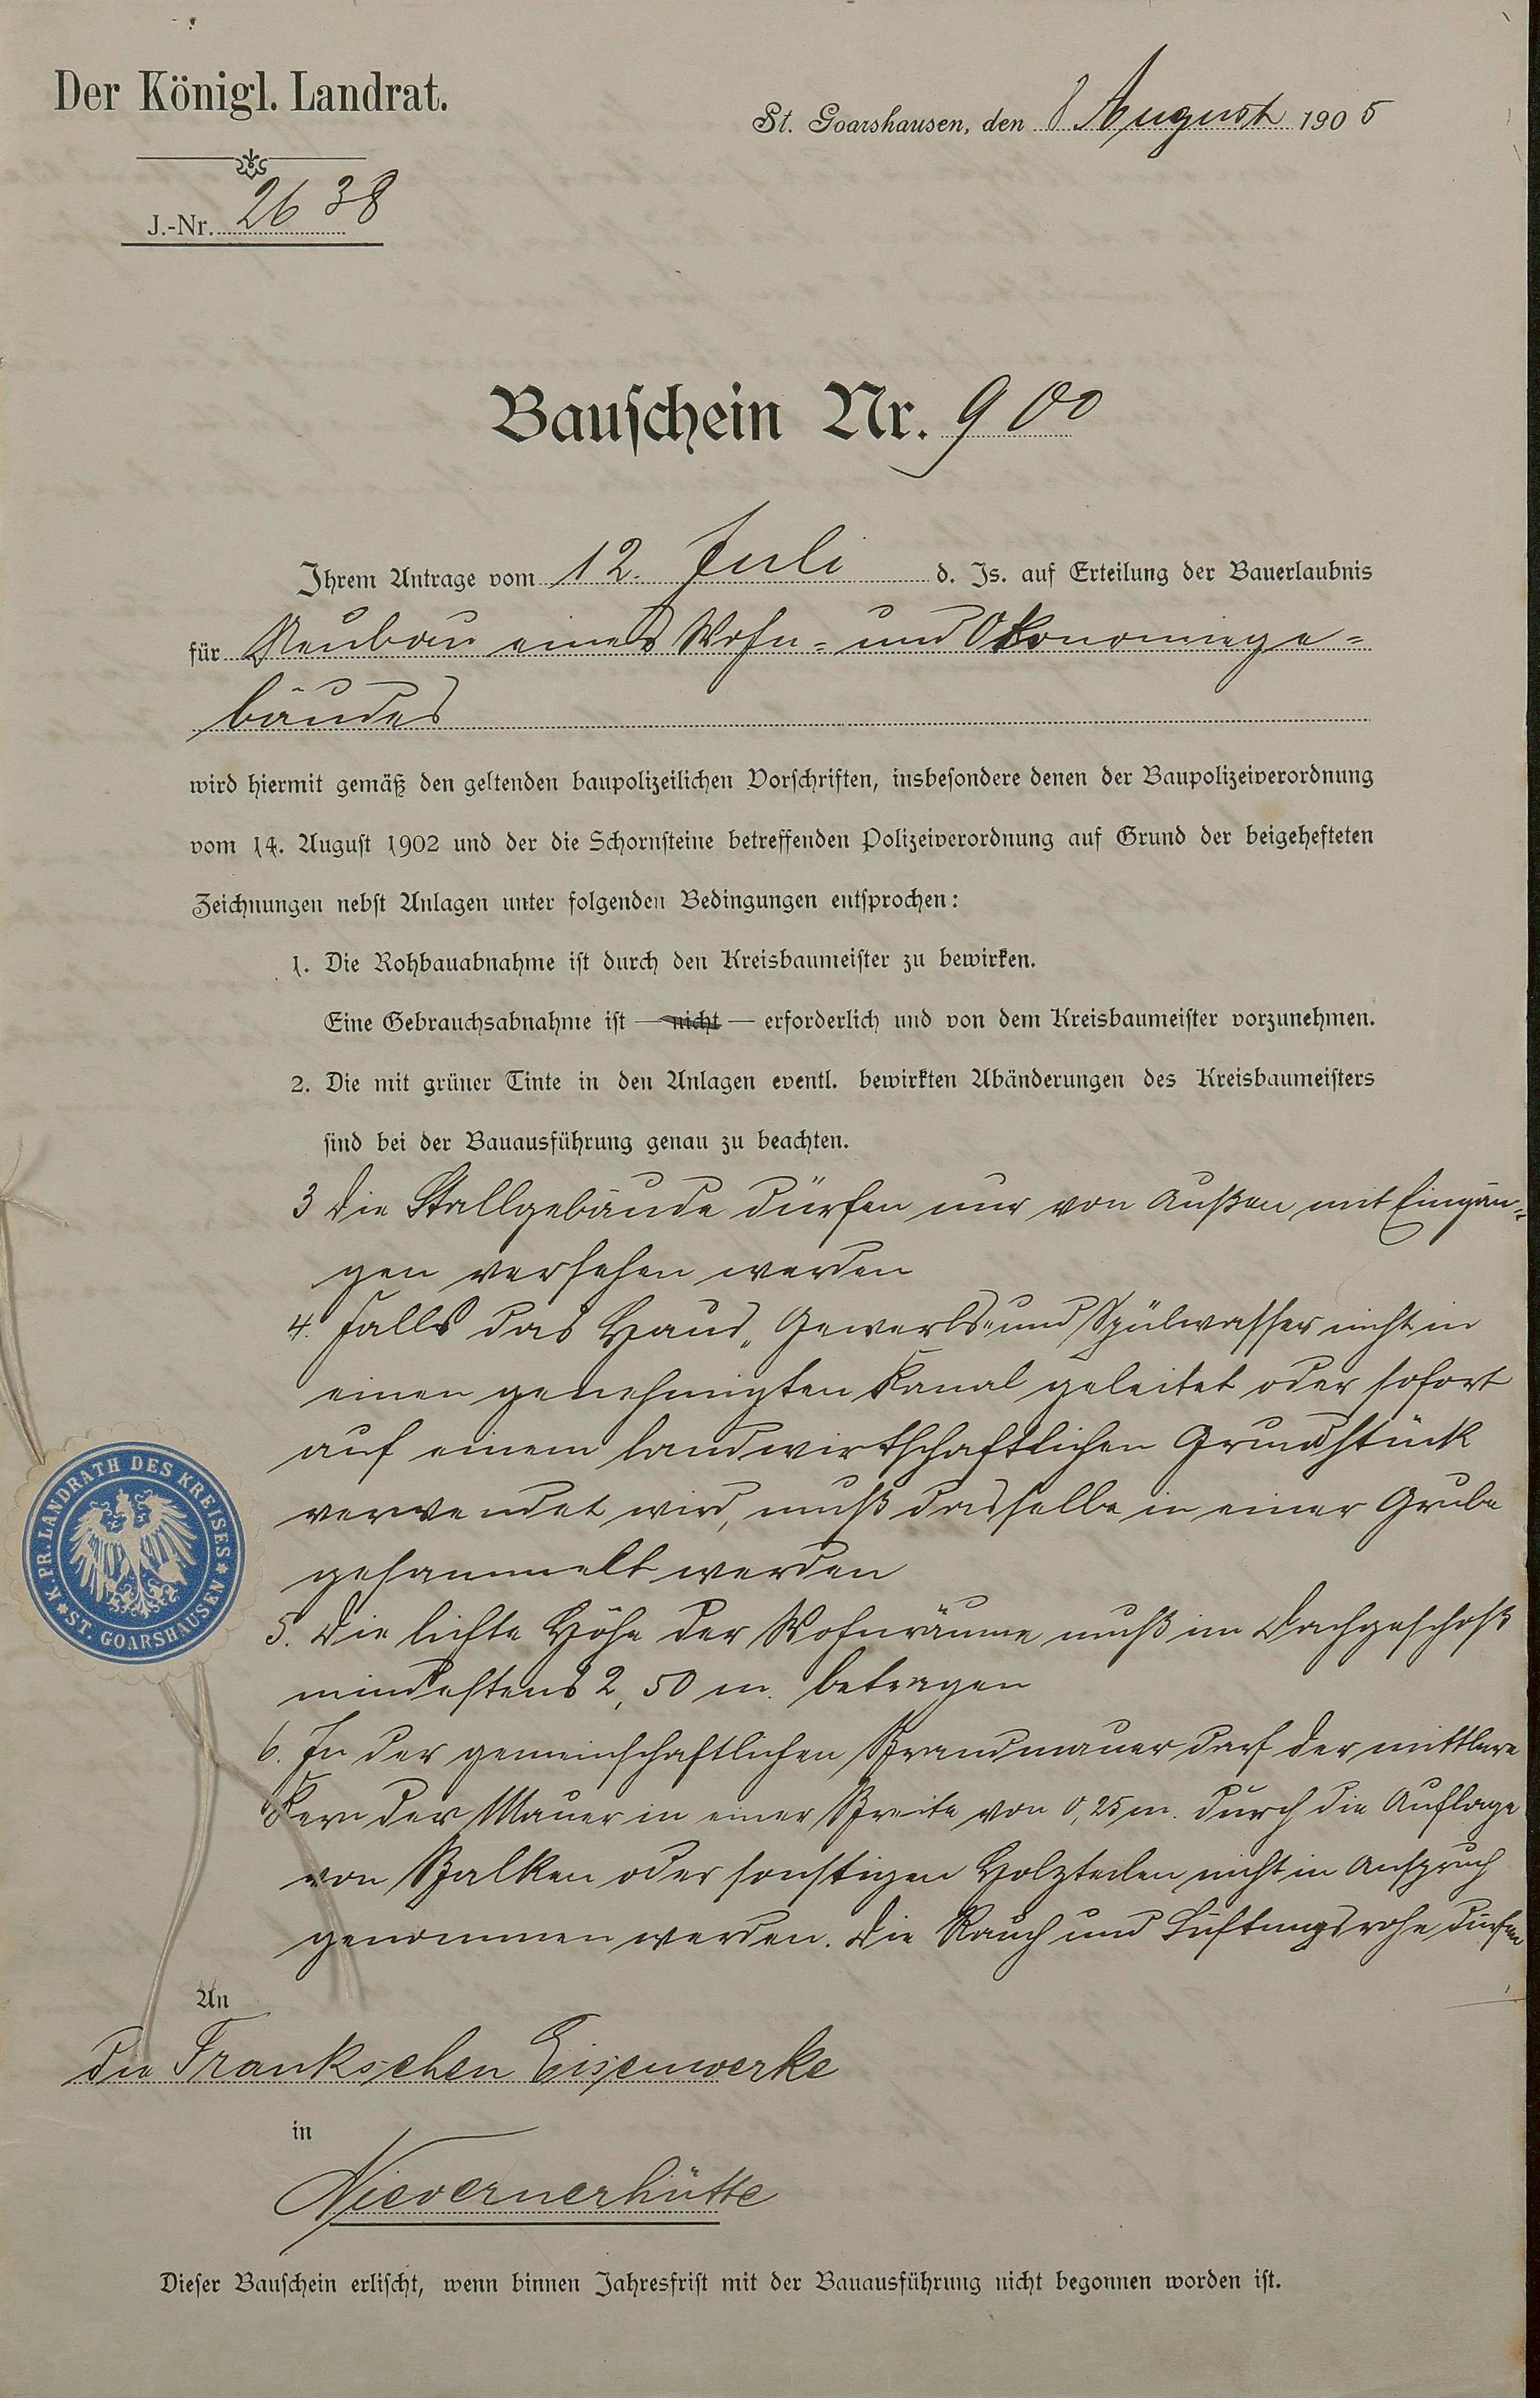 Der Königl. Landrat.
St. Goarshausen, den 8 August 1905
J.-Nr. 2638
Bauschein Nr. 900
Ihrem Antrage vom 12. Juli d. Js. auf Erteilung der Bauerlaubnis
für Neubau eines Wohn- und Ökonomiege-
bäudes
wird hiermit gemäß den geltenden baupolizeilichen Vorschriften, insbesondere denen der Baupolizeiverordnung
vom 14. August 1902 und der die Schornsteine betreffenden Polizeiverordnung auf Grund der beigehefteten
Zeichnungen nebst Anlagen unter folgenden Bedingungen entsprochen:
1. Die Rohbauabnahme ist durch den Kreisbaumeister zu bewirken.
Eine Gebrauchsabnahme ist — nicht — erforderlich und von dem Kreisbaumeister vorzunehmen.
2. Die mit grüner Tinte in den Anlagen eventl. bewirkten Abänderungen des Kreisbaumeisters
sind bei der Bauausführung genau zu beachten.
3 Die Stallgebäude dürfen nur von Außen mit Eingän-
gen versehen werden
4. Falls das Haus, Gewerbs- und Spülwasser nicht in
einen genehmigten Kanal geleitet oder sofort
auf einem landwirthschaftlichen Grundstück
verwendet wird, muß dasselbe in einer Grube
gesammelt werden
5. Die lichte Höhe der Wohnräume muß im Dachgeschoß
mindestens 2,50 m. betragen
6. In der gemeinschaftlichen Brandmauer darf der mittlere
Kern der Mauer in einer Breite von 0,25 m. durch die Auflage
von Balken oder sonstigen Holzteilen nicht in Anspruch
genommen werden. Die Rauch und Lüftungsrohe dürfen
K. PR. LANDRATH DES KREISES
ST. GOARSHAUSEN
An
die Frankschen Eisenwerke
in
Nievernerhütte
Dieser Bauschein erlischt, wenn binnen Jahresfrist mit der Bauausführung nicht begonnen worden ist.